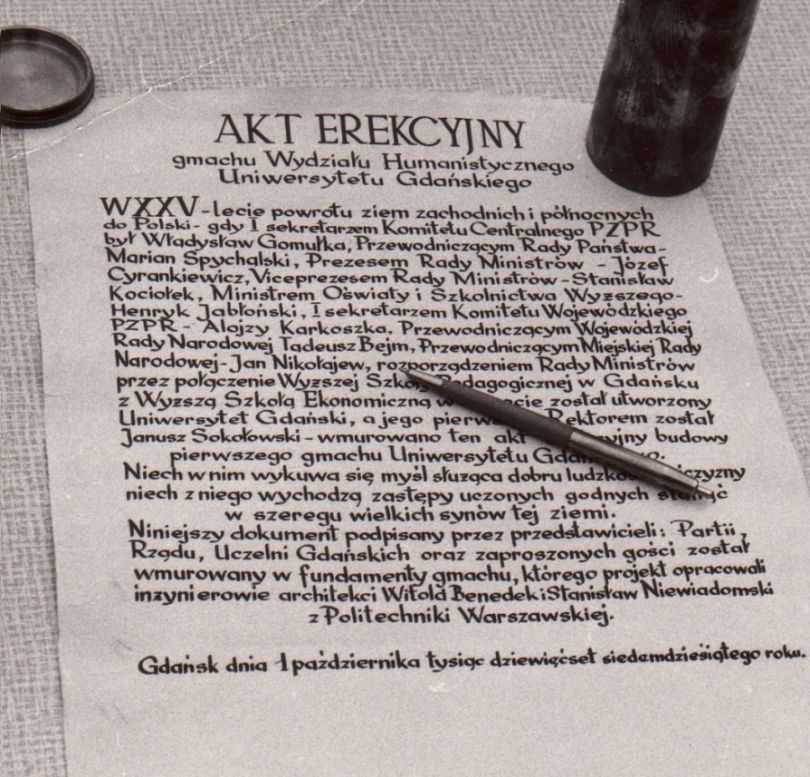 AKT EREKCYJNY
gmachu Wydziału Humanistycznego
Uniwersytetu Gdańskiego
W XXV-lecie powrotu ziem zachodnich i północnych
do Polski - gdy I sekretarzem Komitetu Centralnego PZPR
był Władysław Gomułka, Przewodniczącym Rady Państwa -
Marian Spychalski, Prezesem Rady Ministrów - Józef
Cyrankiewicz, Viceprezesem Rady Ministrów - Stanisław
Kociołek, Ministrem Oświaty i Szkolnictwa Wyższego -
Henryk Jabłoński, I sekretarzem Komitetu Wojewódzkiego
PZPR - Alojzy Karkoszka, Przewodniczącym Wojewódzkiej
Rady Narodowej Tadeusz Bejm, Przewodniczącym Miejskiej Rady
Narodowej - Jan Nikołajew, rozporządzeniem Rady Ministrów
przez połączenie Wyższej Szkoły Pedagogicznej w Gdańsku
z Wyższą Szkołą Ekonomiczną w został utworzony
Uniwersytet Gdański, a jego Rektorem został
Janusz Sokołowski - wmurowano ten akt budowy
pierwszego gmachu Uniwersytetu
Niech w nim wykuwa się myśl służąca dobru
niech z niego wychodzą zastępy uczonych godnych
w szeregu wielkich synów tej ziemi.
Niniejszy dokument podpisany przez przedstawicieli: Partii,
Rządu, Uczelni Gdańskich oraz zaproszonych gości został
wmurowany w fundamenty gmachu, którego projekt opracowali
inżynierowie architekci Witold Benedek i Stanisław Niewiadomski
z Politechniki Warszawskiej.
Gdańsk dnia 1 października tysiąc dziewięćset siedemdziesiątego roku.